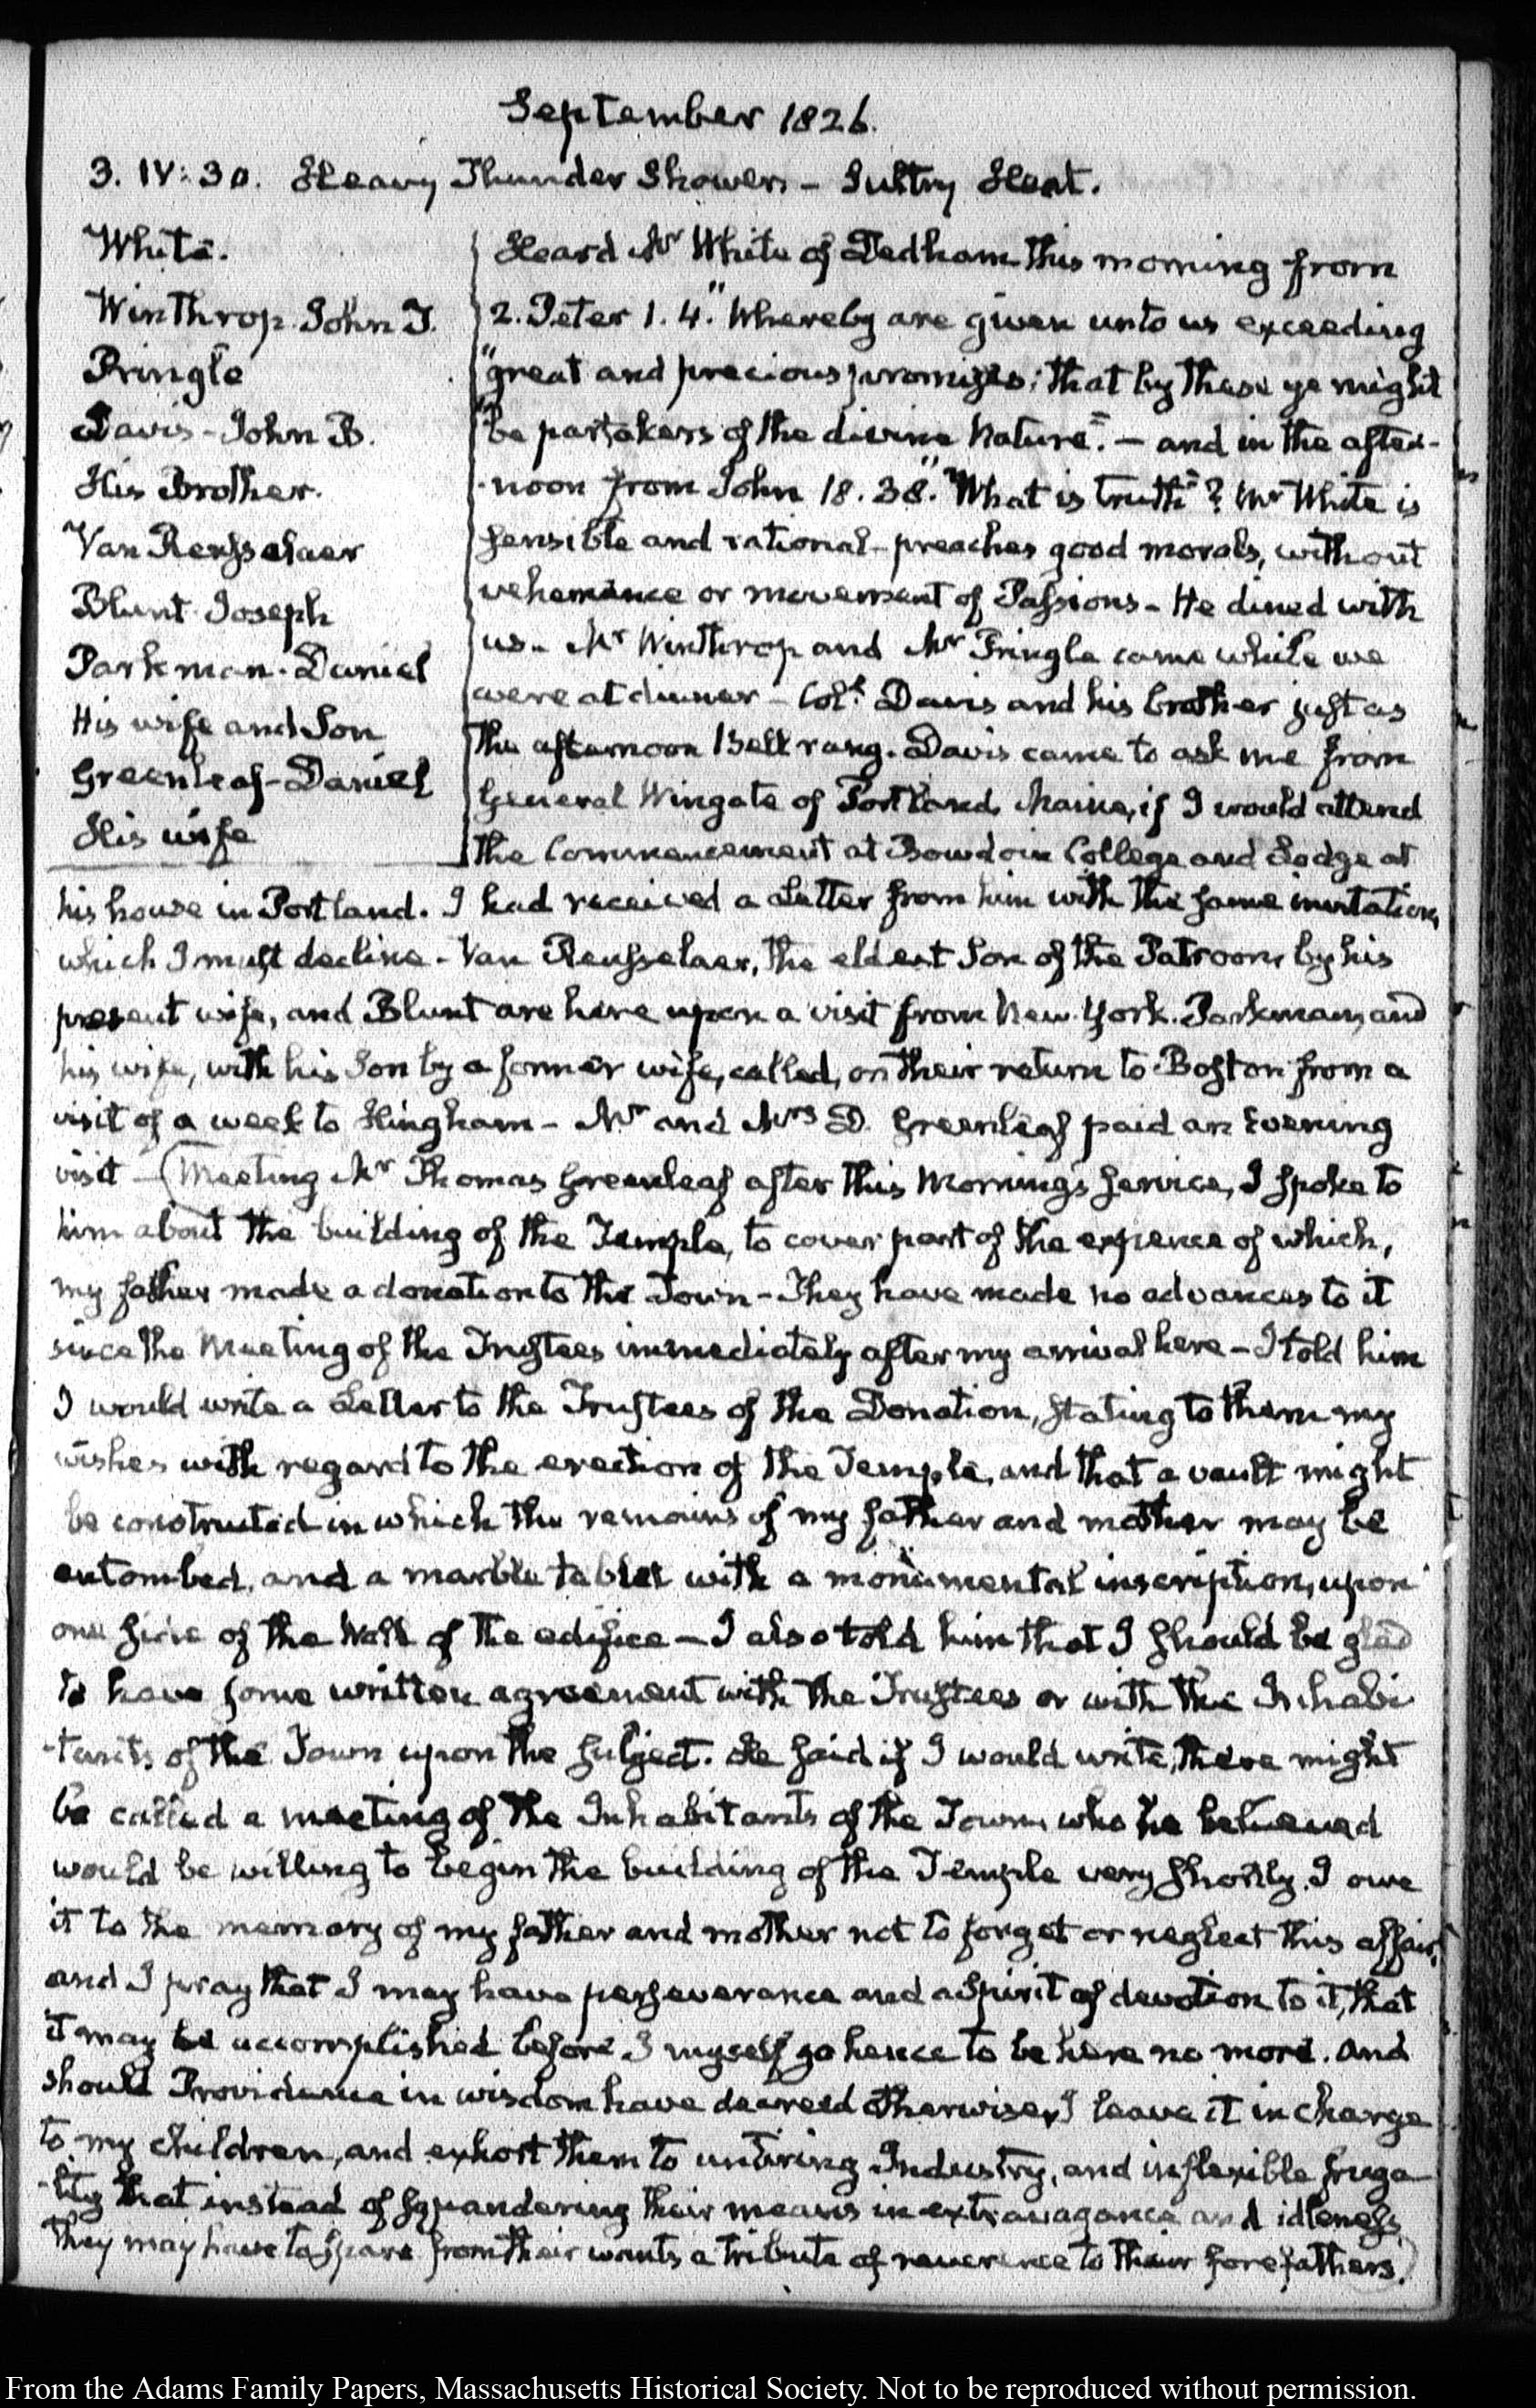 September 1826.
3. IV:30. Heavy Thunder Showers - Sultry Heat.
White.
Winthrop. John T.
Pringle
Davis - John B.
His Brother.
Van Rensselaer
Blunt. Joseph
Parkman. Daniel
His wife and Son
Greenleaf - Daniel
His wife
Heard Mr White of Dedham this morning from
2. Peter 1. 4. "Whereby are given unto us exceeding
"great and precious promises; that by these ye might
"be partakers of the divine Nature". — and in the after-
-noon from John 18. 38. "What is truth"? Mr White is
sensible and rational - preaches good morals, without
vehemence or movement of Passions - He dined with
us - Mr Winthrop and Mr Pringle came while we
were at dinner - Coll. Davis and his brother just as
the afternoon Bell rung. Davis came to ask me from
General Wingate of Portland Maine, if I would attend
the Commencement at Bowdoin College and Lodge at
his house in Portland. I had received a Letter from him with the same invitation,
which I must decline - Van Rensselaer, the eldest Son of the Patroon by his
present wife, and Blunt are here upon a visit from New-York. Parkman, and
his wife, with his Son by a former wife, called, on their return to Boston from a
visit of a week to Hingham - Mr and Mrs D. Greenleaf paid an Evening
visit - (Meeting Mr Thomas Greenleaf after this Morning's service, I spoke to
him about the building of the Temple, to cover part of the expence of which,
my father made a donation to the Town - They have made no advances to it
since the Meeting of the Trustees immediately after my arrival here - I told him
I would write a Letter to the Trustees of the Donation, stating to them my
wishes with regard to the erection of the Temple, and that a vault might
be constructed in which the remains of my father and mother may be
entombed, and a marble tablet with a monumental inscription, upon
one side of the Wall of the edifice — I also told him that I should be glad
to have some written agreement with the Trustees or with the Inhabi
-tants of the Town upon the subject. He said if I would write, there might
be called a meeting of the Inhabitants of the Town, who he believed
would be willing to begin the building of the Temple very shortly. I owe
it to the memory of my father and mother not to forget or neglect this affair,
and I pray that I may have perseverance and a Spirit of devotion to it, that
it may be accomplished before I myself go hence to be here no more. And
should Providence in wisdom have decreed otherwise, I leave it in charge
to my children, and exhort them to untiring Industry, and inflexible fruga
-lity that instead of squandering their means in extravagance and idleness
they may have to spare from their wants a tribute of reverence to their forefathers.)
From the Adams Family Papers, Massachusetts Historical Society. Not to be reproduced without permission.